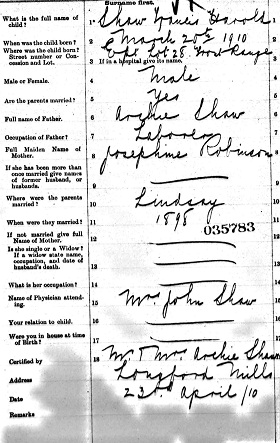 Surname first.
What is the full name of child?
1 Shaw Francis Harold
When was the child born?
2 March 20th 1910
Where was the child born? Street number or Concession and Lot.
3 If in a hospital give its name.
Lot 28 Front Range
Male or Female.
4 Male
Are the parents married?
5 Yes
Full name of Father?
6 Archie Shaw
Occupation of Father?
7 Laborer
Full Maiden Name of Mother.
8 Josephine Robinson
If she has been more than once married give names of former husband, or husbands.
9
Where were the parents married?
10 Lindsay
When were they married?
11 1898
035783
If not married give full Name of Mother.
12
Is she single or a Widow? If a widow state name, occupation, and date of husband's death.
13
What is her occupation?
14
Name of Physician attending.
15 Mrs John Shaw
Your relation to child.
16
Were you in house at time of Birth?
17
Certified by
18 Mr & Mrs Archie Shaw
Address
Longford Mills
Date
23rd April /10
Remarks